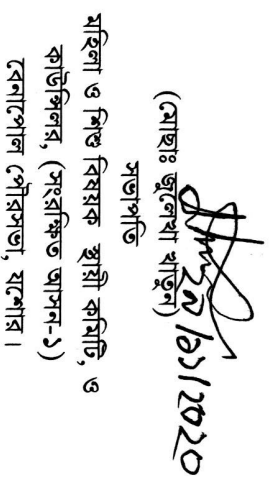 ২৯/১১/2020
(মোছাঃ জুলেখা খাতুন)
সভাপতি
মহিলা ও শিশু বিষয়ক স্থায়ী কমিটি, ও
কাউন্সিলর, (সংরক্ষিত আসন-১)
বেনাপোল পৌরসভা, যশোর।